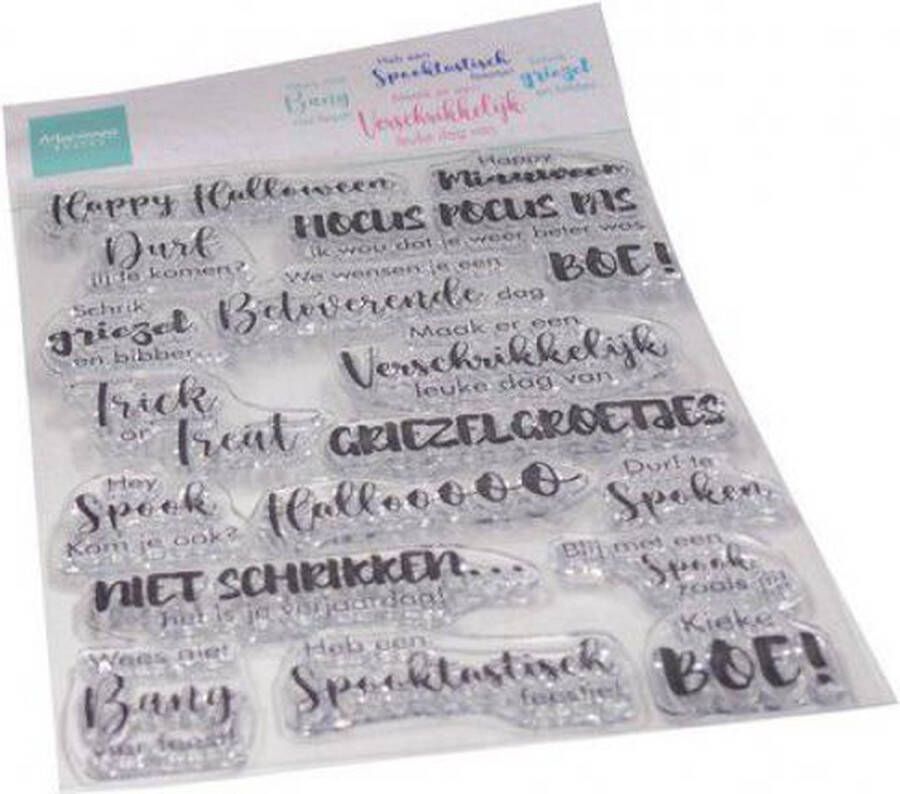 Heb een
Spooktastisch
feestje!
Bang
griezel
en bibber
Verschrikkelijk
leuke dag van
Marianne
Happy Halloween
Happy
Miauween
HOCUS POCUS PAS
ik wou dat je weer beter was
Durf
jij te komen?
We wensen je een
Betoverende dag
BOE!
Schrik
griezel
en bibber...
Maak er een
Verschrikkelijk
leuke dag van
Trick
or
Treat
GRIEZELGROETJES
Hey
Spook
Kom je ook?
Hallooooo
Durf te
Spoken
NIET SCHRIKKEN...
het is je verjaardag!
Blij met een
Spook
zoals jij!
Wees niet
Bang
voor feest!
Heb een
Spooktastisch
feestje!
Kieke
BOE!